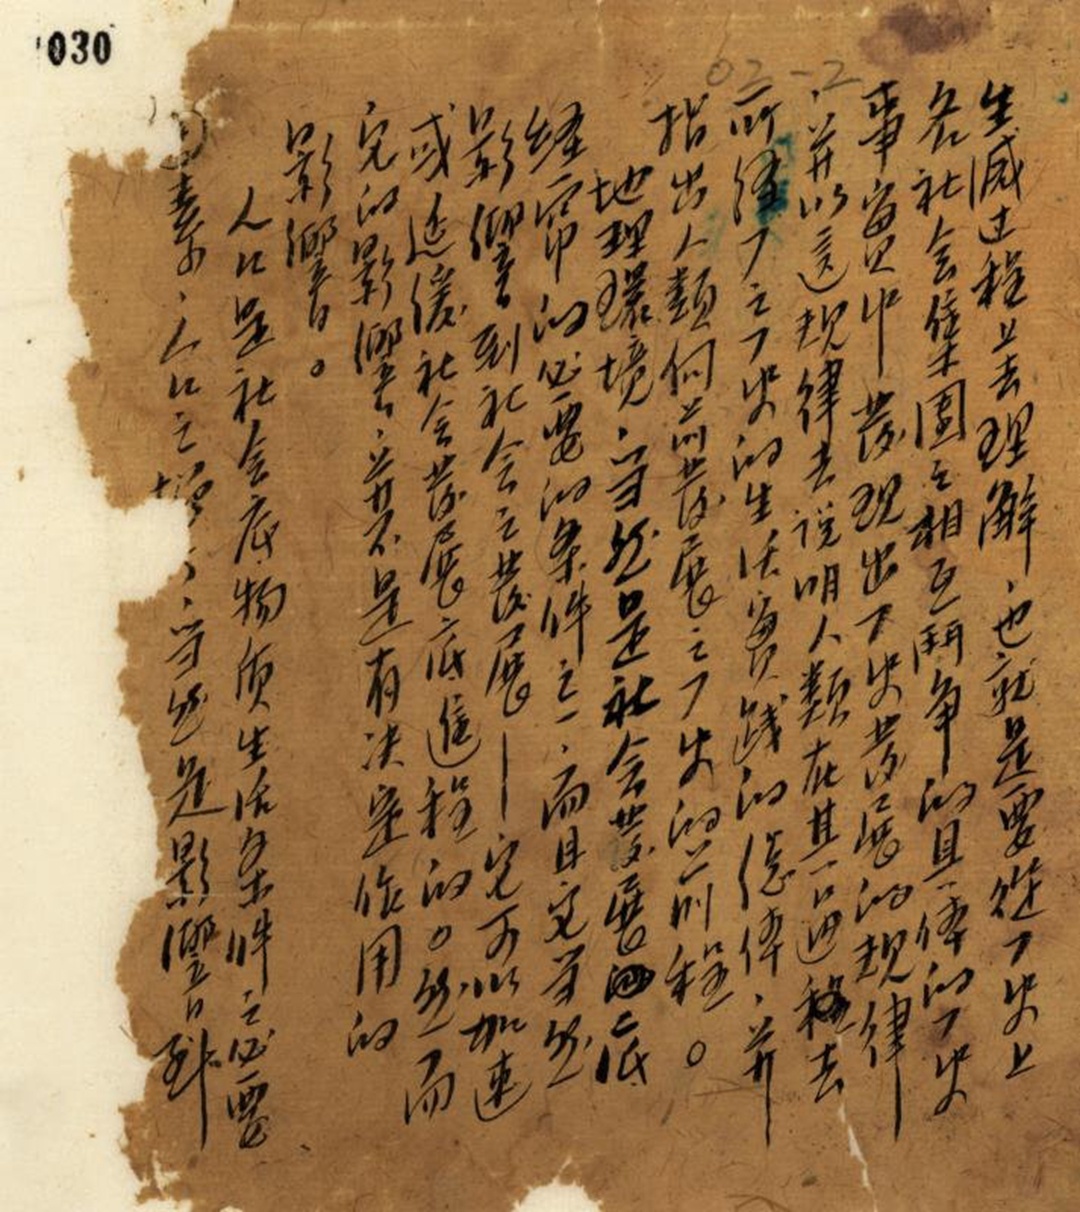 030
02-2
生滅过程上去理解、也就是要從厂史上
各社会集团之相互鬥争的具体的厂史
事實中發現出厂史發展的規律
、并以這規律去説明人類在其一口过程去
所經了之厂史的生活實踐的總体、并
指出人類向前發展之厂史的前程。
地理環境、当然是社会發展底
經常的必要的条件之一、而且它当然
影響到社会之發展——它可以加速
或延緩社会發展底進程的。然而
它的影響、并不是有決定作用的
影響。
人口是社会底物质生活条件之必要
素、人口之增、当然是影響到